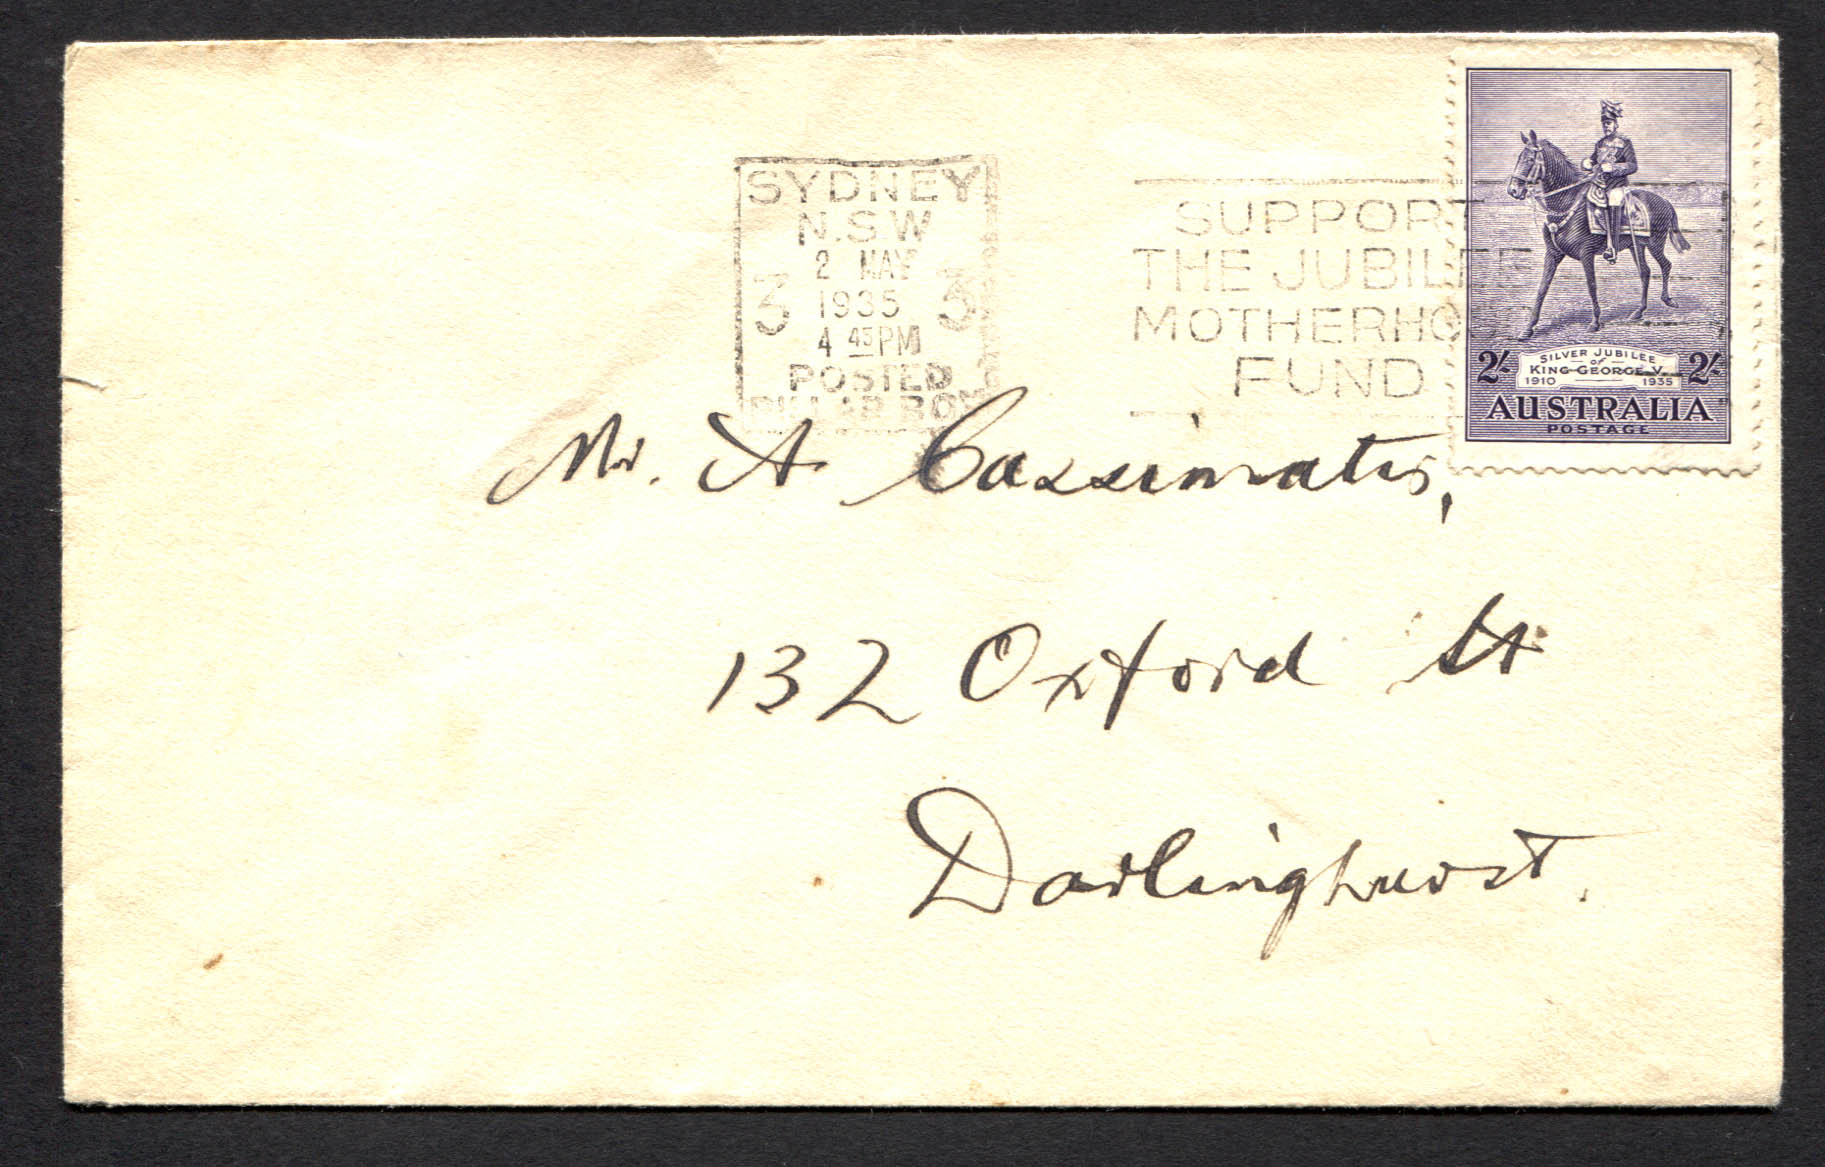 SYDNEY
N.S.W
2 MAY
3 1935 3
4 45 PM
POSTED
PILLAR BOX
SUPPORT
THE JUBILEE
MOTHERHOOD
FUND
2/- SILVER JUBILEE 2/-
of
KING GEORGE V.
1910 1935
AUSTRALIA
POSTAGE
Mr. A Cassimatis,
132 Oxford St
Darlinghurst.